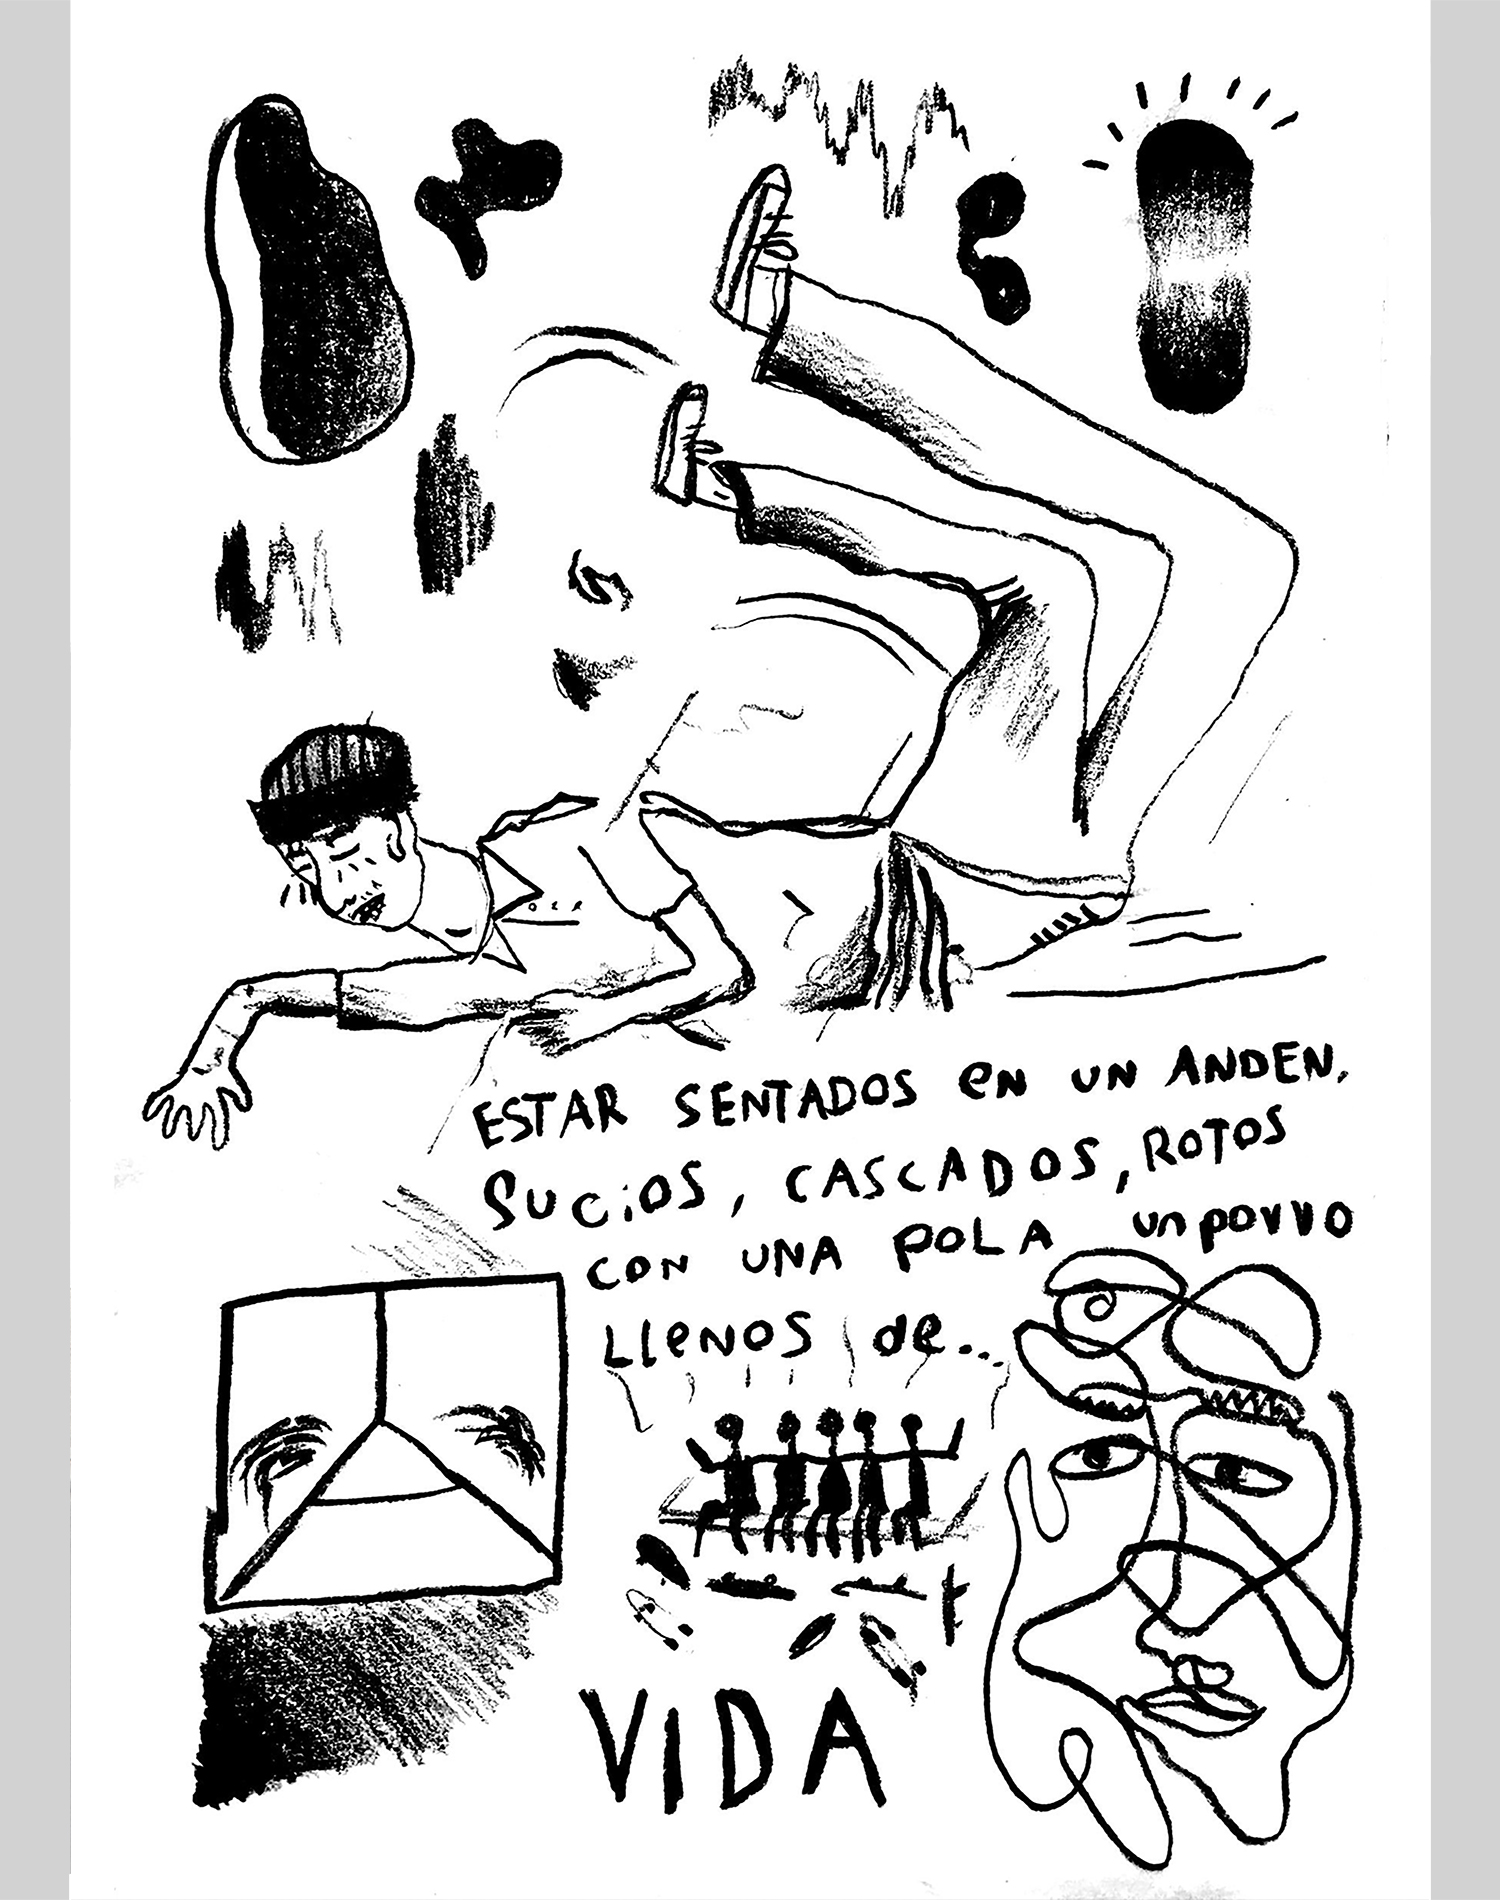 ESTAR SENTADOS eN UN ANDEN,
SUCiOS, CASCADOS, ROTOS
CON UNA POLA un porro
LleNOS de...
ViDA